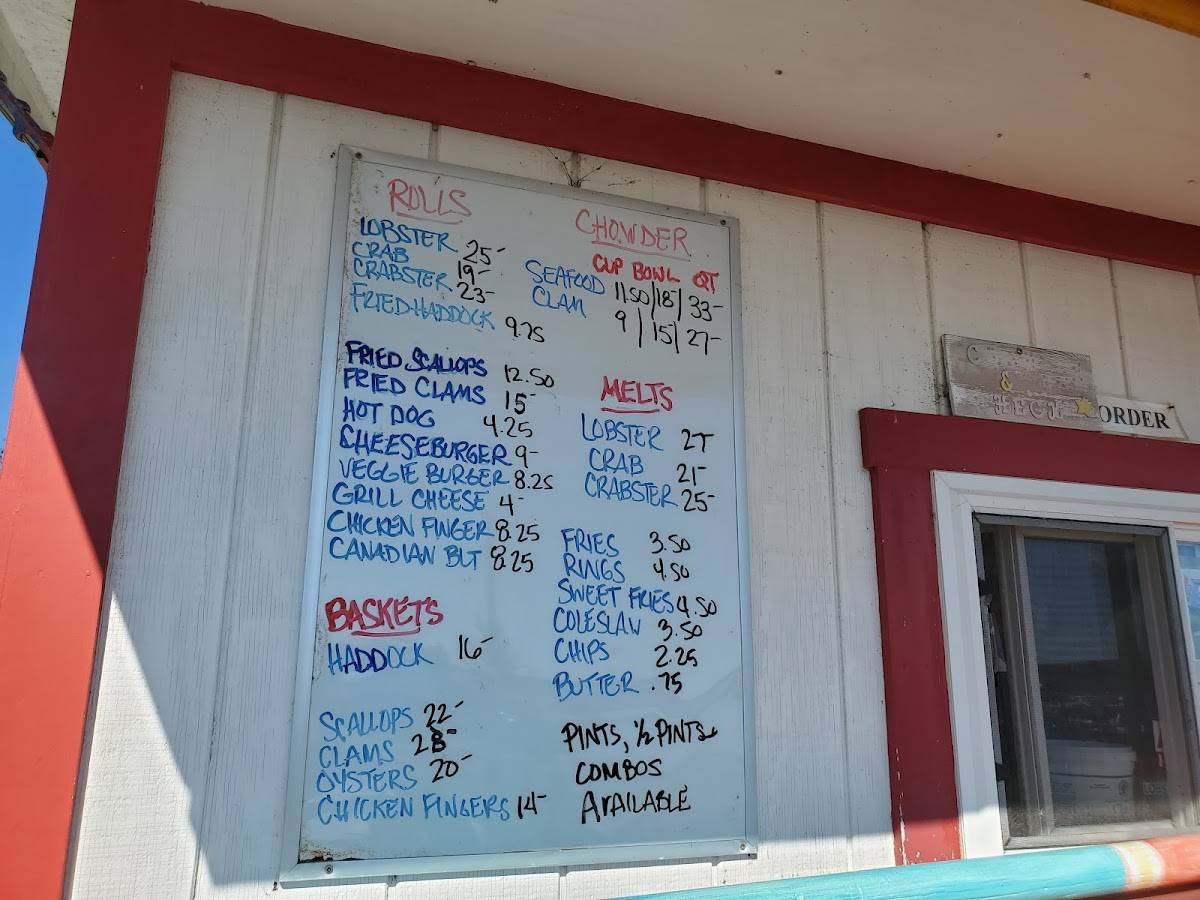 ROLLS
LOBSTER 25-
CRAB 19-
CRABSTER 23-
FRIED HADDOCK 9.25
FRIED SCALLOPS 12.50
FRIED CLAMS 15-
HOT DOG 4.25
CHEESEBURGER 9-
VEGGIE BURGER 8.25
GRILL CHEESE 4-
CHICKEN FINGER 8.25
CANADIAN BLT 8.25
BASKETS
HADDOCK 16-
SCALLOPS 22-
CLAMS 28-
OYSTERS 20-
CHICKEN FINGERS 14-
CHOWDER
CUP BOWL QT
SEAFOOD 11.50/18/33-
CLAM 9/15/27-
MELTS
LOBSTER 27
CRAB 21-
CRABSTER 25-
FRIES 3.50
RINGS 4.50
SWEET FRIES 4.50
COLESLAW 3.50
CHIPS 2.25
BUTTER .75
PINTS, 1/2 PINTS
COMBOS
AVAILABLE
&
ORDER